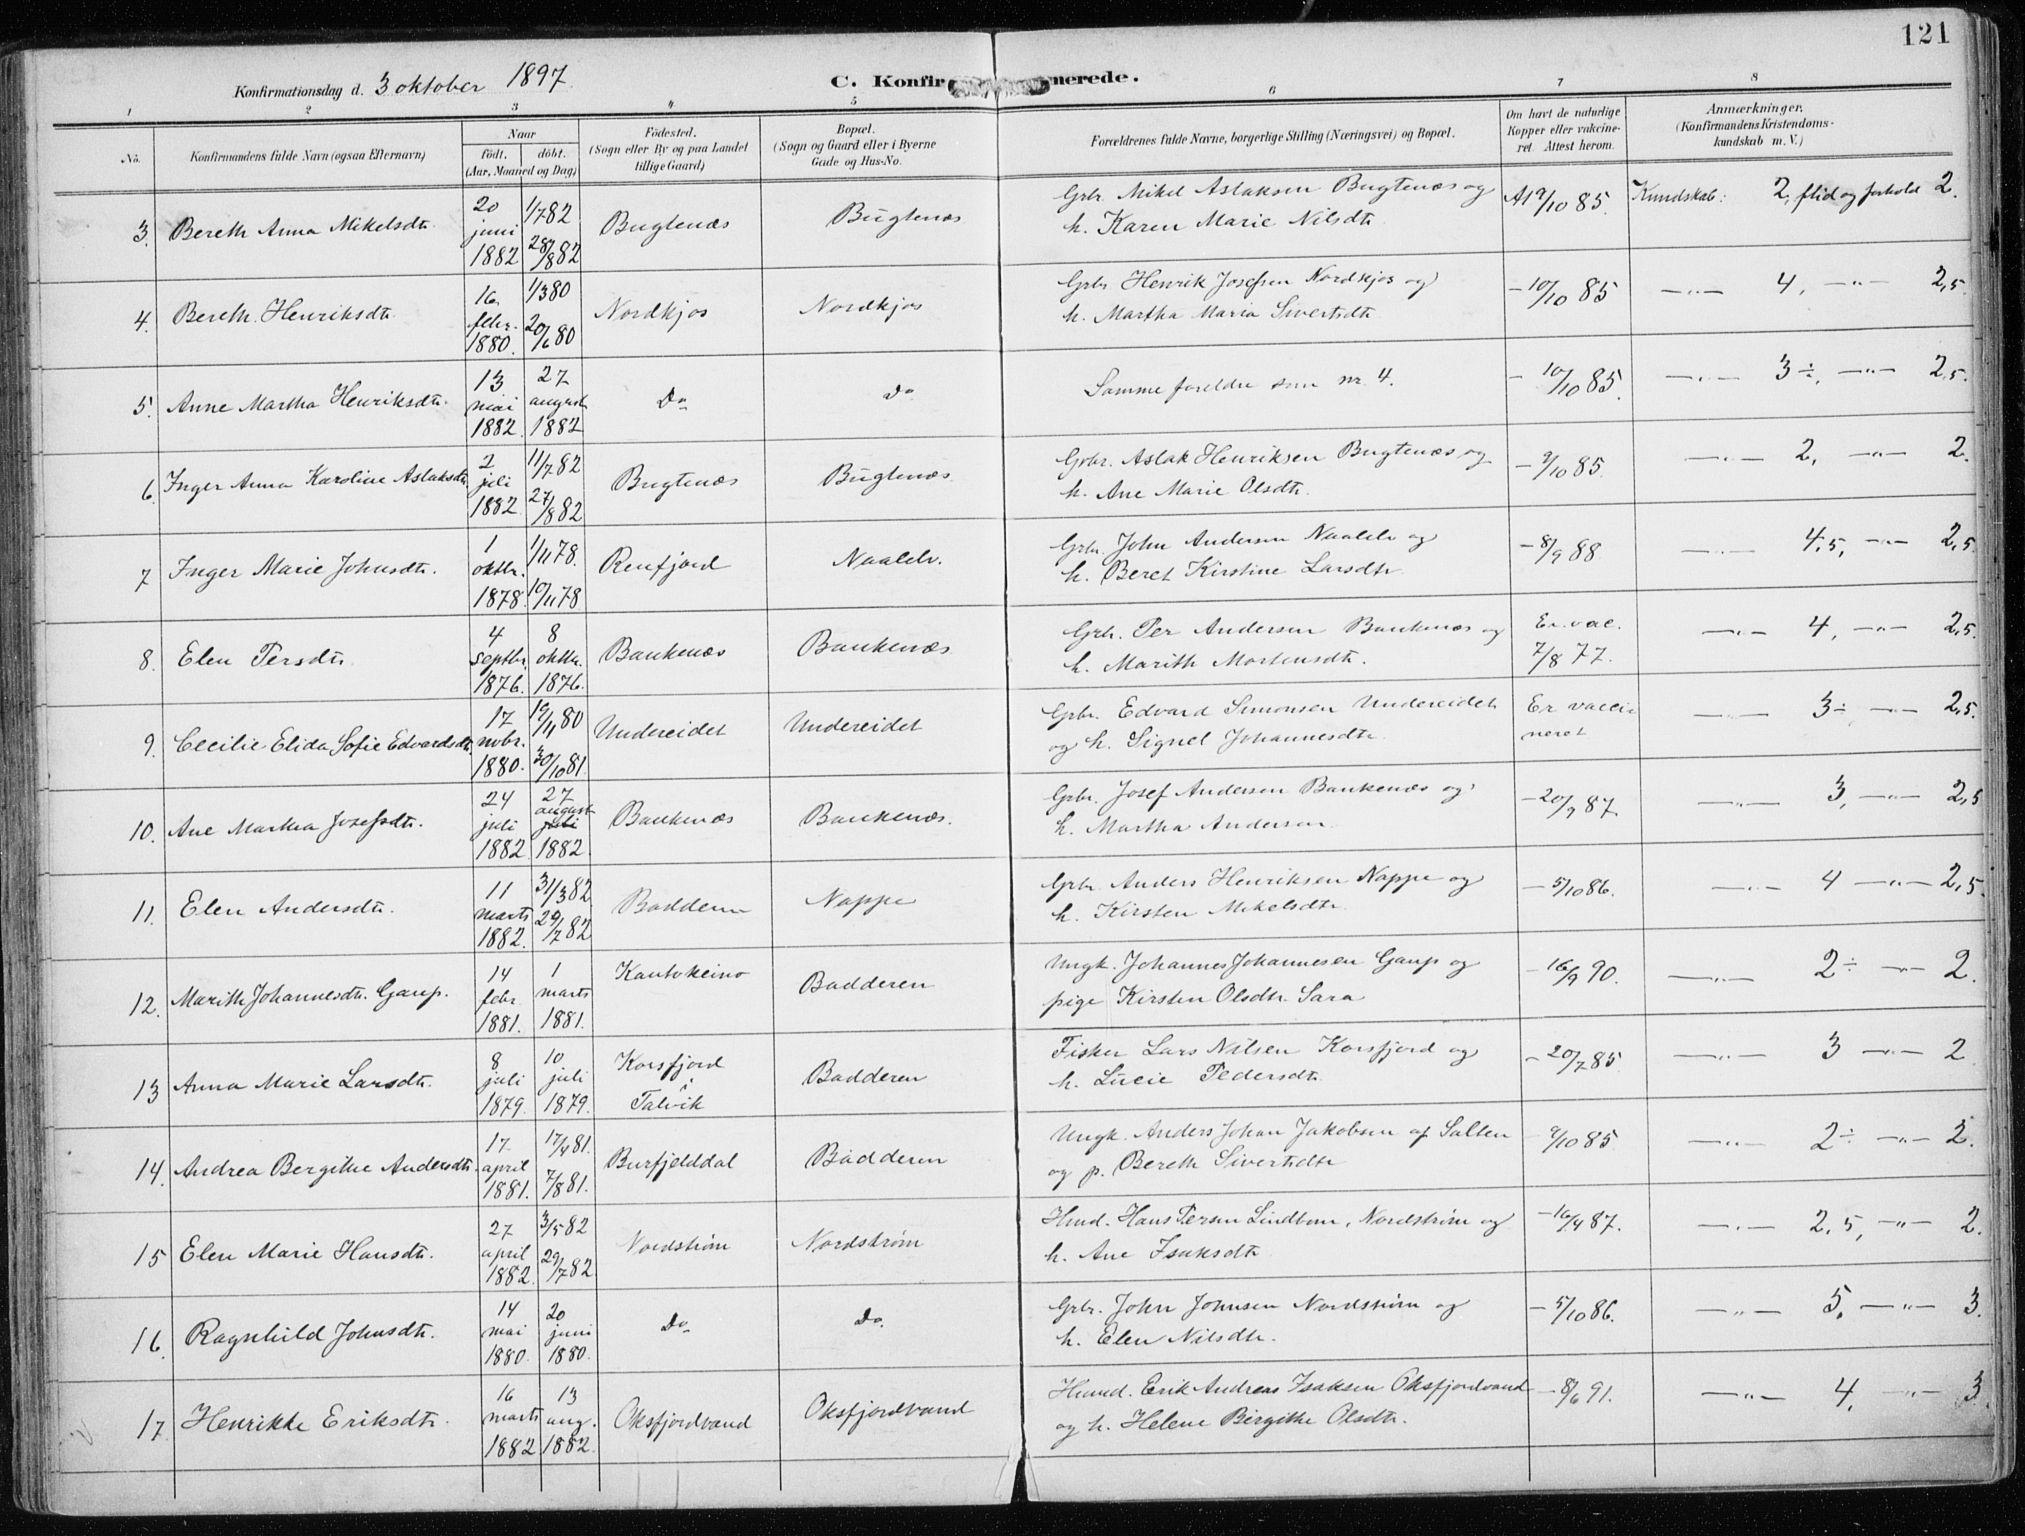 121
Konfirmationsdag d. 3 oktober 1897.
C. Konfir merede.
1 2 3 4 5 6 7 8
No.
Konfirmandens fulde Navn (ogsaa Efternavn)
Naar
födt. döbt.
(Aar, Maaned og Dag)
Födested.
(Sogn eller By og paa Landet
tillige Gaard)
Bopæl.
(Sogn og Gaard eller i Byerne
Gade og Hus-No.
Forældrenes fulde Navne, borgerlige Stilling (Næringsvei) og Bopæl.
Om havt de naturlige
Kopper eller vakcine-
ret. Attest herom.
Anmærkninger.
(Konfirmandens Kristendoms-
kundskab m. V.)
3. Bereth Anna Mikelsdtr. 20 juni 1882 1/7 82 28/8 82 Bugtenæs Bugtenæs Grbr. Mikel Aslaksen Bugtenæs og h. Karen Marie Nilsdtr. At 9/10 85. Kundskab: 2, flid og forhold 2.
4. Bereth Henriksdtr. 16 febr. 1880. 1/3 80 20/6 80 Nordkjos Nordkjos Grbr. Henrik Josefsen Nordkjos og h. Martha Maria Sivertsdtr. – 10/10 85 –"– 4, –"– 2,5.
5. Anne Martha Henriksdtr. 13 mai 1882. 27 august 1882 Do Do Samme foreldre som nr. 4. – 10/10 85. –"– 3÷, –"– 2,5.
6. Inger Anna Karoline Aslaksdtr. 2 juli 1882. 11/7 82 27/8 82 Bugtenæs Bugtenæs Grbr. Aslak Henriksen Bugtenæs og h. Ane Marie Olsdtr. – 9/10 85. –"– 2, –"– 2.
7 Inger Marie Johnsdtr. 1 oktbr. 1878. 1/11 78. 10/11 78 Renfjord Naalelv. Grbr. John Andersen Naalelv og h. Beret Kirstine Larsdtr. – 8/9 88 –"– 4,5, –"– 2,5.
8. Elen Persdtr. 4 septbr. 1876. 8 oktbr. 1876. Bankenæs Bankenæs Grbr. Per Andersen Bankenæs og h. Marith Mortensdtr. Er vac. 7/8 77. –"– 4, –"– 2,5.
9. Cecilie Elida Sofie Edvardsdtr. 17 novbr. 1880. 19/11 80 30/10 81. Undereidet Undereidet Grbr. Edvard Simonsen Undereidet og h. Signel Johannesdtr. Er vacci- neret –"– 3÷ –"– 2,5.
10. Ane Martha Josefsdtr. 24 juli 1882 27 august juli 1882 Bankenæs Bankenæs. Grbr. Josef Andersen Bankenæs og h. Martha Andersen. – 20/9 87. –"– 3, –"– 2,5
11. Elen Andersdtr. 11 marts 1882. 31/3 82 29/7 82 Badderen Nappe Grbr. Anders Henriksen Nappe og h. Kirsten Mikelsdtr. – 5/10 86. –"– 4 –"– 2,5.
12. Marith Johannesdtr. Gaup. 14 febr. 1881. 1 marts 1881. Kautokeino Badderen Ungk. Johannes Johannesen Gaup og pige Kirsten Olsdtr. Sara – 16/9 90. –"– 2÷ –"– 2.
13 Anna Marie Larsdtr. 8 juli 1879. 10 juli 1879. Korsfjord i Talvik Badderen Fisker Lars Nilsen Korsfjord og h. Lucie Pedersdtr. – 20/7 85. –"– 3 –"– 2
14. Andrea Bergithe Andersdtr. 17 april 1881. 17/4 81. 7/8 81. Burfjelddal Badderen Ungk. Anders Johan Jakobsen af Salten og p. Bereth Sivertsdtr 9/10 85 –"– 2÷ –"– 2.
15 Elen Marie Hansdtr. 27 april 1882. 3/5 82 29/7 82. Nordstrøm Nordstrøm Hmd. Hans Persen Lindbom, Nordstrøm og h. Ane Isaksdtr. – 16/4 87. –"– 2,5, –"– 2.
16. Ragnhild Johnsdtr. 14 mai 1880. 20 juni 1880. Do Do. Grbr. John Johnsen Nordstrøm og h. Elen Nilsdtr. – 5/10 86. –"– 5. –"– 3.
17. Henrikke Eriksdtr. 16 marts 1882 13 aug. 1882. Oksfjordvand Oksfjordvand Husmd. Erik Andreas Isaksen Oksfjordvand og h. Helene Birgithe Olsdtr. – 8/6 91. –"– 4, –"– 3.